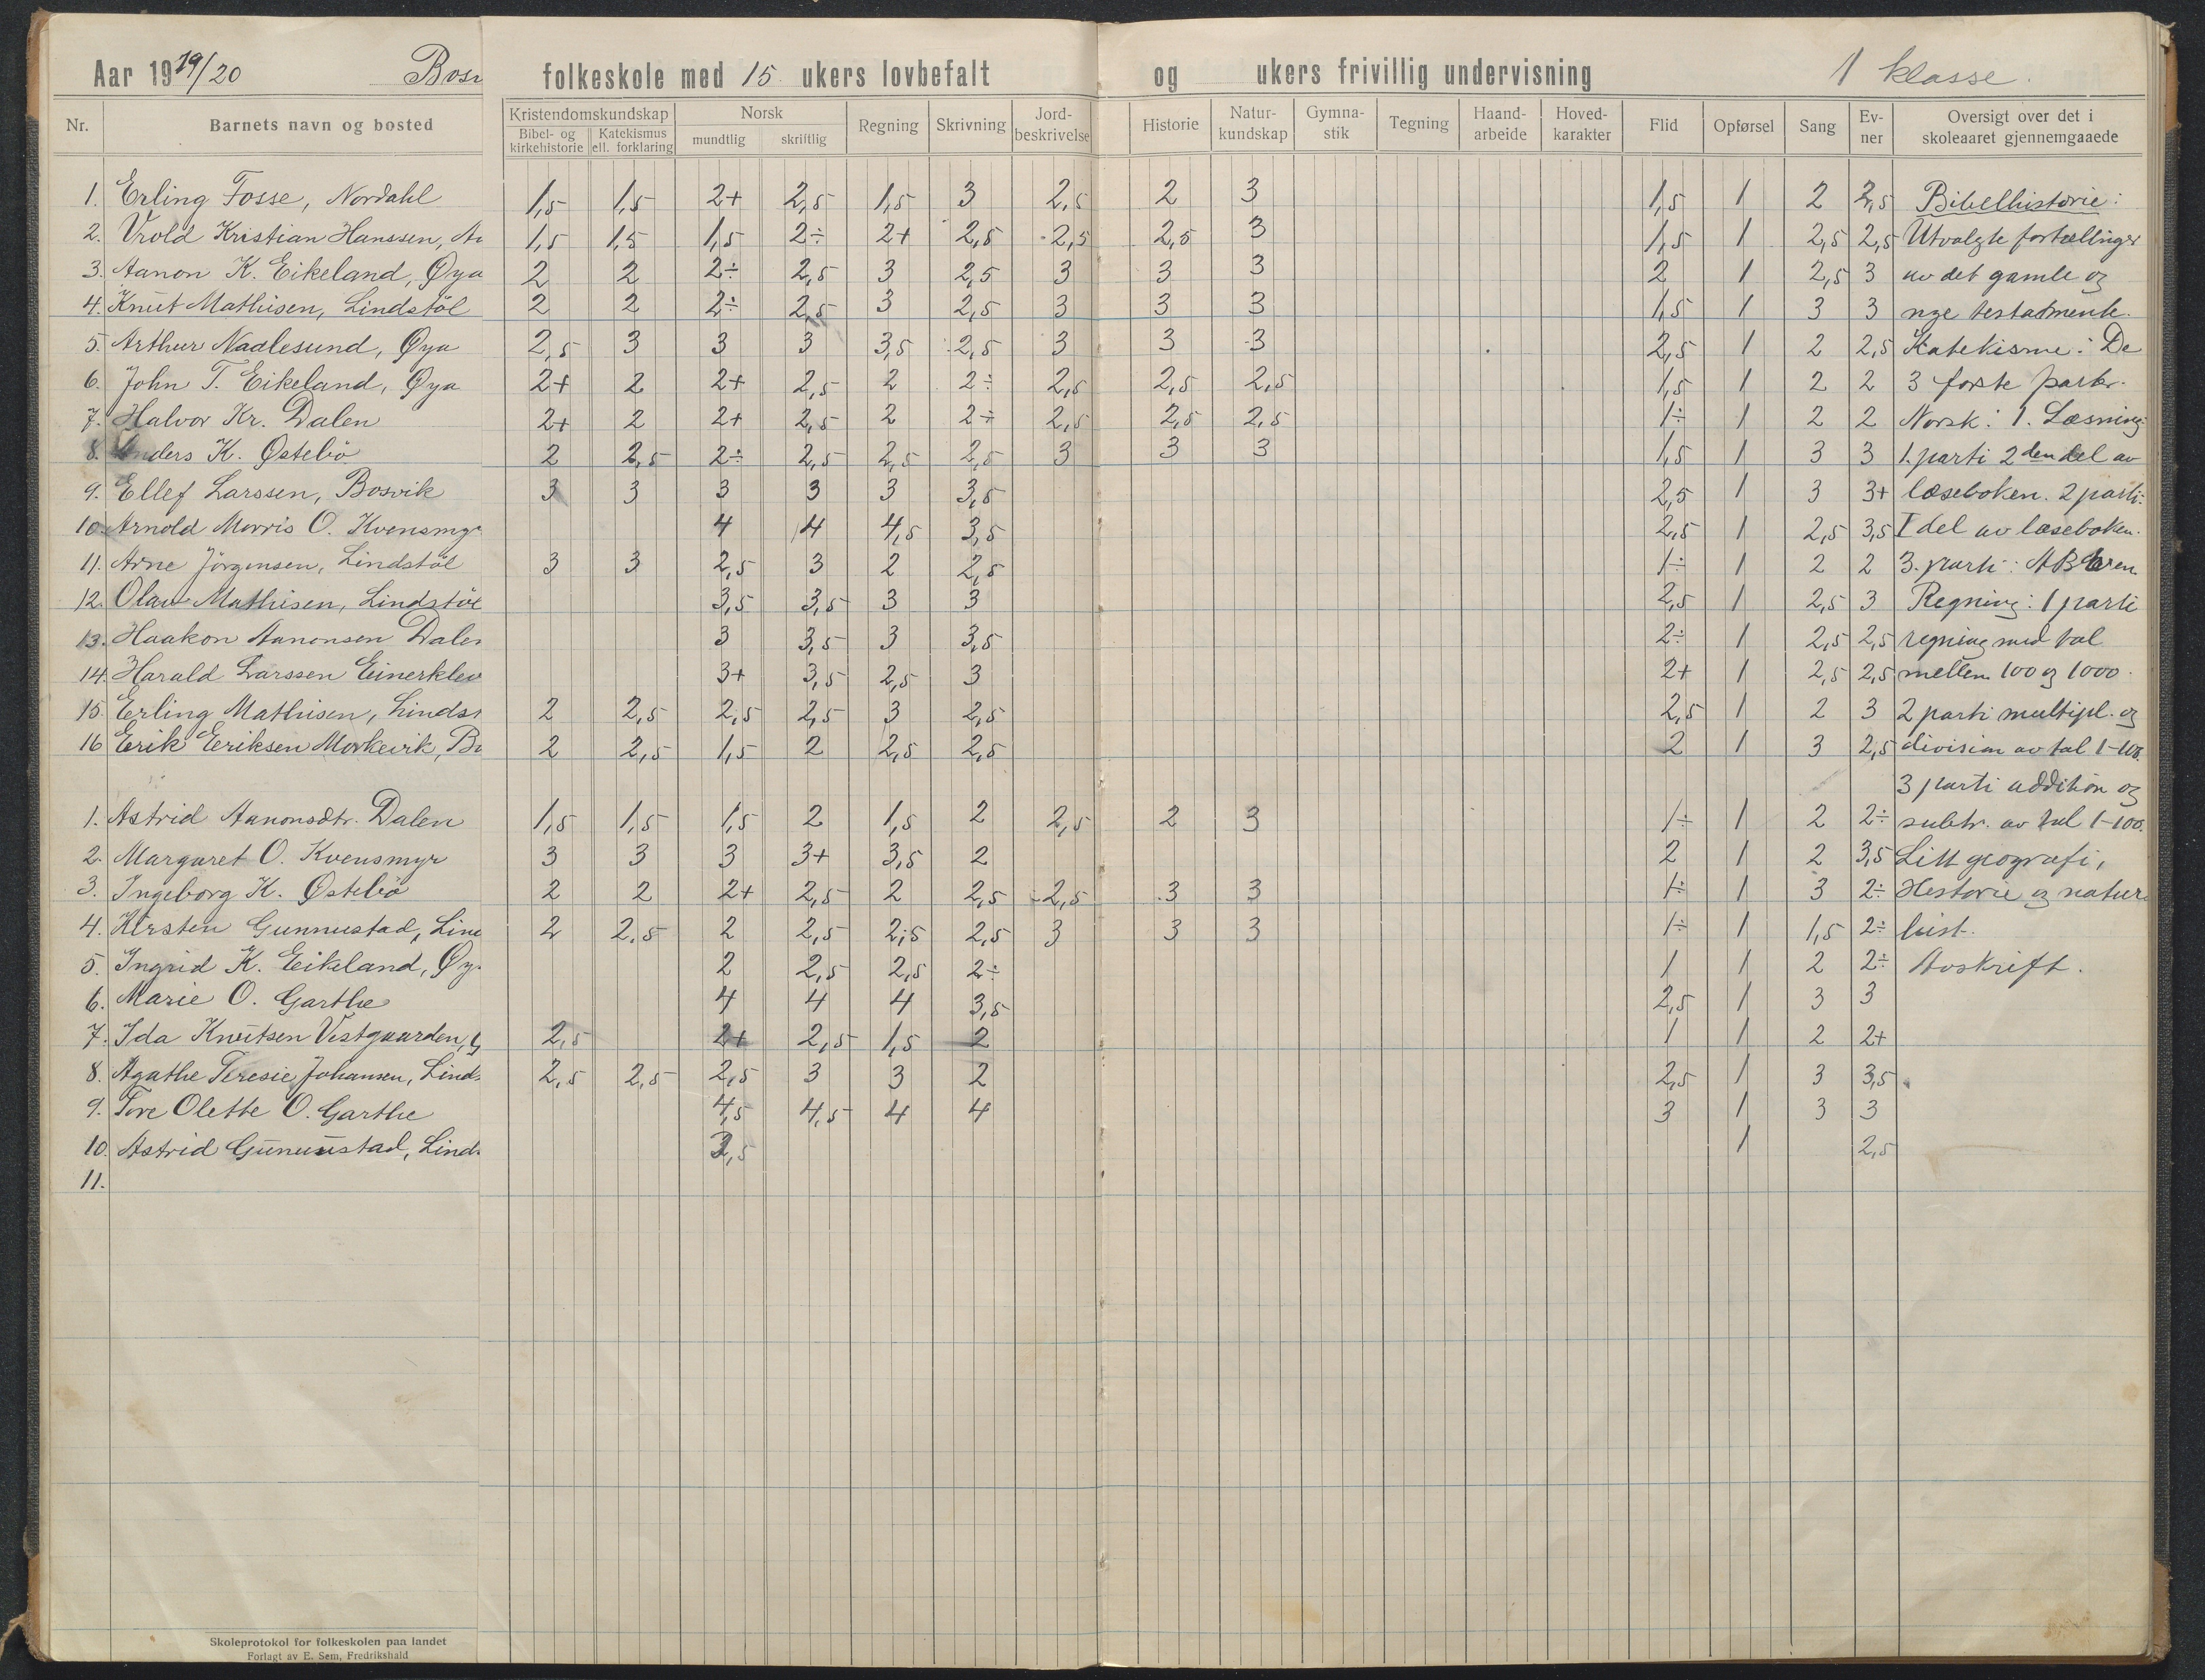 Aar 1919/20 Bosv folkeskole med 15 ukers lovbefalt og ukers frivillig undervisning 1 klasse.
Nr. Barnets navn og bosted Kristendomskundskap Norsk Regning Skrivning Jord-beskrivelse Historie Natur-kundskap Gymna-stik Tegning Haand-arbeide Hoved-karakter Flid Opførsel Sang Ev-ner Oversigt over det i skoleaaret gjennemgaaede
Bibel- og kirkehistorie Katekismus ell. forklaring mundtlig skriftlig
1. Erling Fosse, Nordahl 1,5 1,5 2+ 2,5 1,5 3 2,5 2 3 1,5 1 2 2,5 Bibelhistorie:
2. Vrold Kristian Hanssen, 1,5 1,5 1,5 2÷ 2+ 2,5 2,5 2,5 3 1,5 1 2,5 2,5 Utvalgte fortællinger
3. Aanon K. Eikeland, Øya 2 2 2÷ 2,5 3 2,5 3 3 3 2 1 2,5 3 av det gamle og
4. Knut Mathisen, Lindstöl 2 2 2÷ 2,5 3 2,5 3 3 3 1,5 1 3 3 nye testamente.
5. Arthur Nadlesund, Øya 2,5 3 3 3 3,5 2,5 3 3 3 2,5 1 2 2,5 Katekisme: De
6. John T. Eikeland, Øya 2+ 2 2+ 2,5 2 2÷ 2,5 2,5 2,5 1,5 1 2 2 3 første parter.
7. Halvor Kr. Dalen 2+ 2 2+ 2,5 2 2÷ 2,5 2,5 2,5 1÷ 1 2 2 Norsk: 1. Læsning:
8. Anders K. Østebö 2 2,5 2÷ 2,5 2,5 2,5 3 3 3 1,5 1 3 3 1. parti 2den del av
9. Ellef Larssen, Bosvik 3 3 3 3 3 3,5 2,5 1 3 3+ læseboken. 2 parti:
10. Arnold Morris O. Kvensmyr 4 4 4,5 3,5 2,5 1 2,5 3,5 I del av læseboken.
11. Arne Jörgensen, Lindstöl 3 3 2,5 3 2 2,5 1÷ 1 2 2 3. parti: ABCen.
12. Olav Mathisen, Lindstöl 3,5 3,5 3 3 2,5 1 2,5 3 Regning: 1 parti
13. Haakon Aanonsen Dalen 3 3,5 3 3,5 2÷ 1 2,5 2,5 regning med tal
14. Harald Larssen Einerklev 3+ 3,5 2,5 3 2+ 1 2,5 2,5 mellem 100 og 1000.
15. Erling Mathisen, Lindst 2 2,5 2,5 2,5 3 2,5 2,5 1 2 3 2 parti multipl. og
16 Erik Eriksen Morkevik, Bo 2 2,5 1,5 2 2,5 2,5 2 1 3 2,5 division av tal 1-100.
3 parti addition og
1. Astrid Aanonsdtr. Dalen 1,5 1,5 1,5 2 1,5 2 2,5 2 3 1÷ 1 2 2÷ subtr. av tal 1-100.
2. Margaret O. Kvensmyr 3 3 3 3+ 3,5 2 2 1 2 3,5 Litt geografi,
3. Ingeborg K. Østebö 2 2 2+ 2,5 2 2,5 2,5 3 3 1÷ 1 3 2÷ Historie og natur
4. Kirsten Gunnustad, Lin 2 2,5 2 2,5 2,5 2,5 3 3 3 1÷ 1 1,5 2÷ hist.
5. Ingrid K. Eikeland, Øy 2 2,5 2,5 2÷ 1 1 2 2÷ Avskrift.
6. Marie O. Garthe 4 4 4 3,5 2,5 1 3 3
7. Ida Knutsen Vestgaarden, 2,5 2+ 2,5 1,5 2 1 1 2 2+
8. Agathe Teresie Johansen, Linds 2,5 2,5 2,5 3 3 2 2,5 1 3 3,5
9. Tore Olette O. Garthe 4,5 4,5 4 4 3 1 3 3
10. Astrid Gunnustad, Linds 3,5 1 2,5
11.
Skoleprotokol for folkeskolen paa landet
Forlagt av E. Sem, Fredrikshald